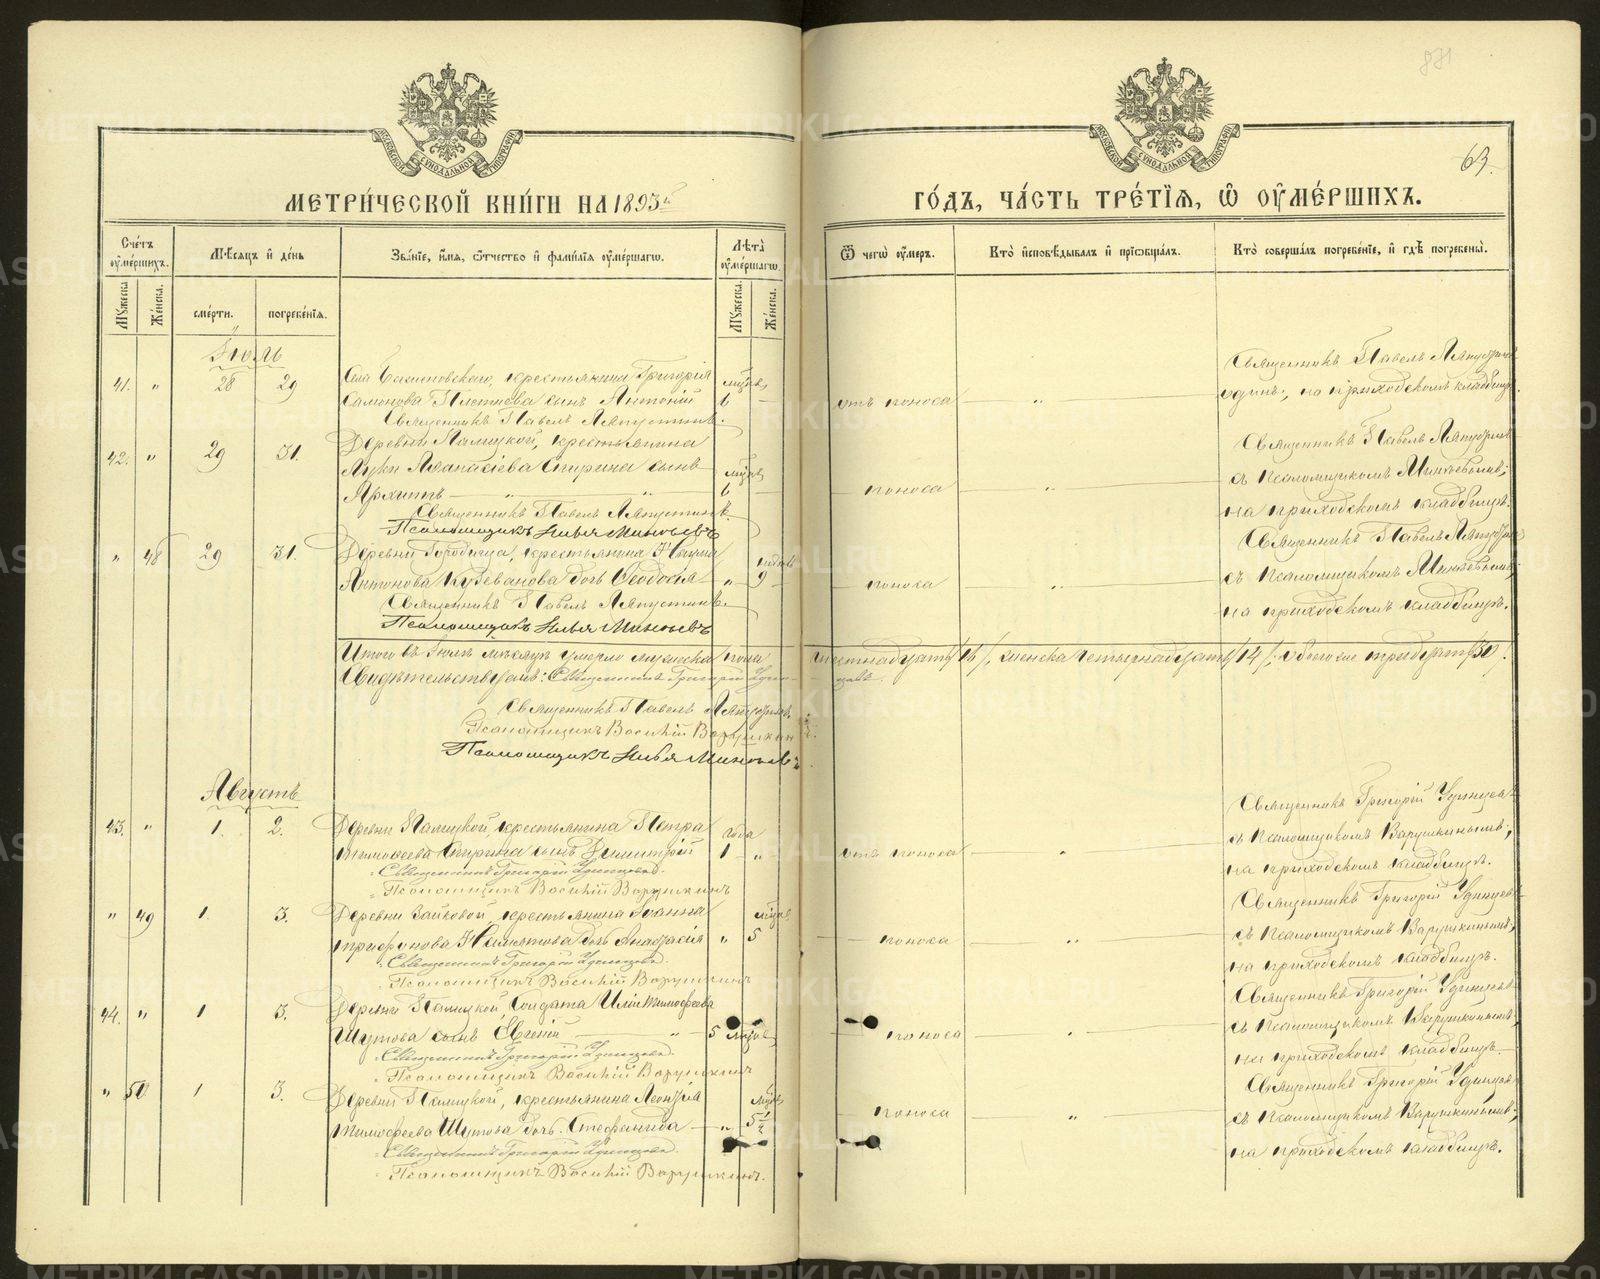 871
63.
МОСКОВСКОЙ СѴНОДАЛЬНОЙ ТИПОГРАФІИ
МОСКОВСКОЙ СѴНОДАЛЬНОЙ ТИПОГРАФІИ
МЕТРИ́ЧЕСКОЙ КНИ́ГИ НА 1895й ГО́ДЪ, ЧА́СТЬ ТРЕ́ТІЯ, Ѿ ОУМЕ́РШИХЪ.
Сче́тъ оуме́ршихъ.
Мꙋ́жеска
Же́нска.
Мѣ́сяцъ и́ де́нь
сме́рти.
погребе́нія.
Зва́ніе, и́мя, ѻ́тчество и́ фами́лія оуме́ршагѡ.
Лѣта̀ оуме́ршагѡ.
Мꙋ́жеска.
Же́нска.
Ѿ чегѡ̀ оу́меръ.
Кто̀ и́сповѣ́дывалъ и́ прїѻбща́лъ.
Кто̀ соверша́лъ погребе́ніе, и́ гдѣ̀ погребены̀.
Іюль
41. " 28 29
крестьянина Григорія
Самонова Плетнева сынъ Антоній 6
Священникъ Павелъ Ляпустинъ.
отъ поноса "
Священникъ Павелъ Ляпустинъ
одинъ; на приходскомъ кладбищѣ.
42. " 29 31.
Деревни Палицкой, крестьянина
Луки Аѳанасіева Спирина сынъ
Архиппъ " " 6
Священникъ Павелъ Ляпустинъ.
Псаломщикъ Илья Минѣевъ
поноса "
Священникъ Павелъ Ляпустинъ
съ псаломщикомъ Минѣевымъ;
на приходскомъ кладбищѣ.
" 48 29 31.
Деревни Городища, крестьянина Наума
Антонова Куреванова дочь Ѳеодосія " 9
Священникъ Павелъ Ляпустинъ.
Псаломщикъ Илья Минѣевъ
поноса "
Священникъ Павелъ Ляпустинъ
съ псаломщикомъ Минѣевымъ;
на приходскомъ кладбищѣ.
Итого въ Іюлѣ мѣсяцѣ умерло мужеска пола шестнадцать /16/, женска четырнадцать /14/, обоего же тридцать /30/.
Свидѣтельствуемъ: Священникъ Григорій Удинцевъ.
Священникъ Павелъ Ляпустинъ.
Псаломщикъ Василій Варушкинъ.
Псаломщикъ Илья Минѣевъ
Августъ
43. " 1. 2.
Деревни Палицкой, крестьянина Петра года
Тимоѳеева Спирина сынъ Димитрій 1 "
Священникъ Григорій Удинцевъ.
Псаломщикъ Василій Варушкинъ
отъ поноса "
Священникъ Григорій Удинцевъ
съ псаломщикомъ Варушкинымъ;
на приходскомъ кладбищѣ.
" 49 1. 3.
Деревни Зайковой, крестьянина Іоанна
Трифонова дочь Анастасія " 5
Священникъ Григорій Удинцевъ.
Псаломщикъ Василій Варушкинъ
поноса "
Священникъ Григорій Удинцевъ
съ псаломщикомъ Варушкинымъ;
на приходскомъ кладбищѣ.
44. " 1 3.
Деревни Палицкой, солдата Иліи Тимоѳеева
Шутова сынъ Евгеній " 5
Священникъ Григорій Удинцевъ.
Псаломщикъ Василій Варушкинъ
поноса "
Священникъ Григорій Удинцевъ
съ псаломщикомъ Варушкинымъ;
на приходскомъ кладбищѣ.
" 50 1 3.
Деревни Палицкой, крестьянина Леонтія
Тимофеева Шутова дочь Стефанида " 5 1/2
Священникъ Григорій Удинцевъ.
Псаломщикъ Василій Варушкинъ.
поноса "
Священникъ Григорій Удинцевъ
съ псаломщикомъ Варушкинымъ;
на приходскомъ кладбищѣ.
METRIKI.GASO-URAL.RU